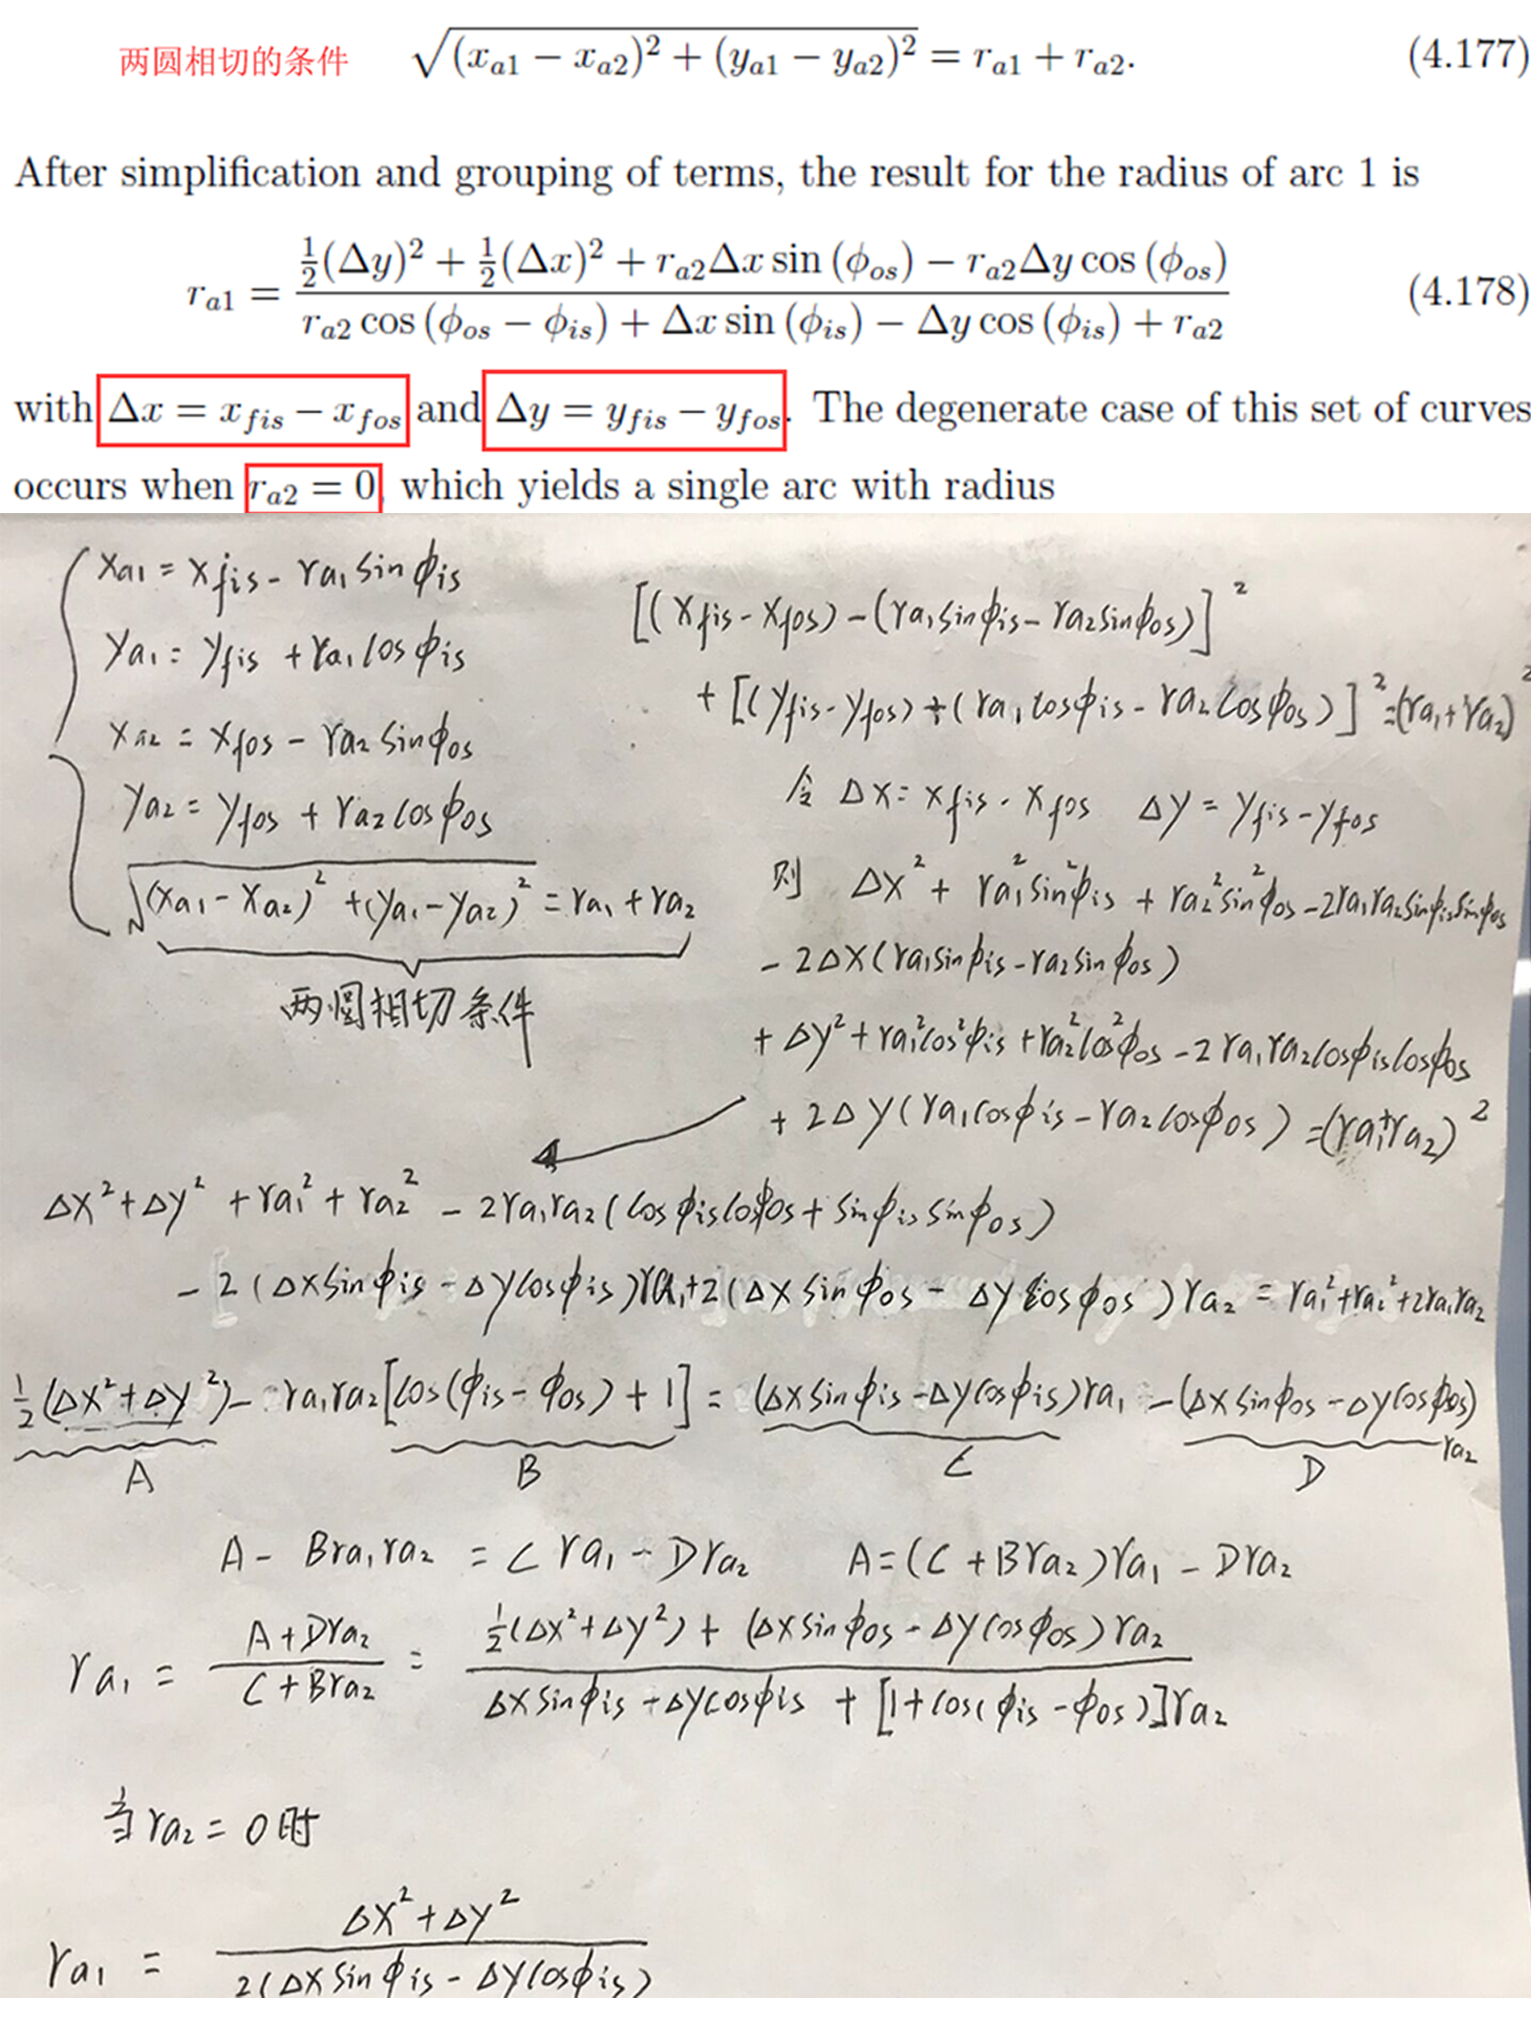 两圆相切的条件 √((x_{a1} − x_{a2})² + (y_{a1} − y_{a2})²) = r_{a1} + r_{a2}. (4.177)
After simplification and grouping of terms, the result for the radius of arc 1 is
r_{a1} = (½(Δy)² + ½(Δx)² + r_{a2}Δx sin (φ_{os}) − r_{a2}Δy cos (φ_{os})) / (r_{a2} cos (φ_{os} − φ_{is}) + Δx sin (φ_{is}) − Δy cos (φ_{is}) + r_{a2}) (4.178)
with Δx = x_{fis} − x_{fos} and Δy = y_{fis} − y_{fos}. The degenerate case of this set of curves
occurs when r_{a2} = 0, which yields a single arc with radius
x_{a1} = x_{fis} - r_{a1} sin φ_{is}
y_{a1} = y_{fis} + r_{a1} cos φ_{is}
x_{a2} = x_{fos} - r_{a2} sin φ_{os}
y_{a2} = y_{fos} + r_{a2} cos φ_{os}
√((x_{a1} - x_{a2})² + (y_{a1} - y_{a2})²) = r_{a1} + r_{a2}
两圆相切条件
[(x_{fis} - x_{fos}) - (r_{a1} sin φ_{is} - r_{a2} sin φ_{os})]²
+ [(y_{fis} - y_{fos}) + (r_{a1} cos φ_{is} - r_{a2} cos φ_{os})]² = (r_{a1} + r_{a2})²
令 Δx = x_{fis} - x_{fos} Δy = y_{fis} - y_{fos}
则 Δx² + r_{a1}² sin² φ_{is} + r_{a2}² sin² φ_{os} - 2r_{a1}r_{a2} sin φ_{is} sin φ_{os}
- 2Δx(r_{a1} sin φ_{is} - r_{a2} sin φ_{os})
+ Δy² + r_{a1}² cos² φ_{is} + r_{a2}² cos² φ_{os} - 2r_{a1}r_{a2} cos φ_{is} cos φ_{os}
+ 2Δy(r_{a1} cos φ_{is} - r_{a2} cos φ_{os}) = (r_{a1} + r_{a2})²
Δx² + Δy² + r_{a1}² + r_{a2}² - 2r_{a1}r_{a2}(cos φ_{is} cos φ_{os} + sin φ_{is} sin φ_{os})
- 2(Δx sin φ_{is} - Δy cos φ_{is})r_{a1} + 2(Δx sin φ_{os} - Δy cos φ_{os})r_{a2} = r_{a1}² + r_{a2}² + 2r_{a1}r_{a2}
½(Δx² + Δy²) - r_{a1}r_{a2}[cos(φ_{is} - φ_{os}) + 1] = (Δx sin φ_{is} - Δy cos φ_{is})r_{a1} - (Δx sin φ_{os} - Δy cos φ_{os})r_{a2}
A B C D
A - Br_{a1}r_{a2} = Cr_{a1} - Dr_{a2} A = (C + Br_{a2})r_{a1} - Dr_{a2}
r_{a1} = (A + Dr_{a2}) / (C + Br_{a2}) = (½(Δx² + Δy²) + (Δx sin φ_{os} - Δy cos φ_{os})r_{a2}) / (Δx sin φ_{is} - Δy cos φ_{is} + [1 + cos(φ_{is} - φ_{os})]r_{a2})
当 r_{a2} = 0 时
r_{a1} = (Δx² + Δy²) / (2(Δx sin φ_{is} - Δy cos φ_{is}))